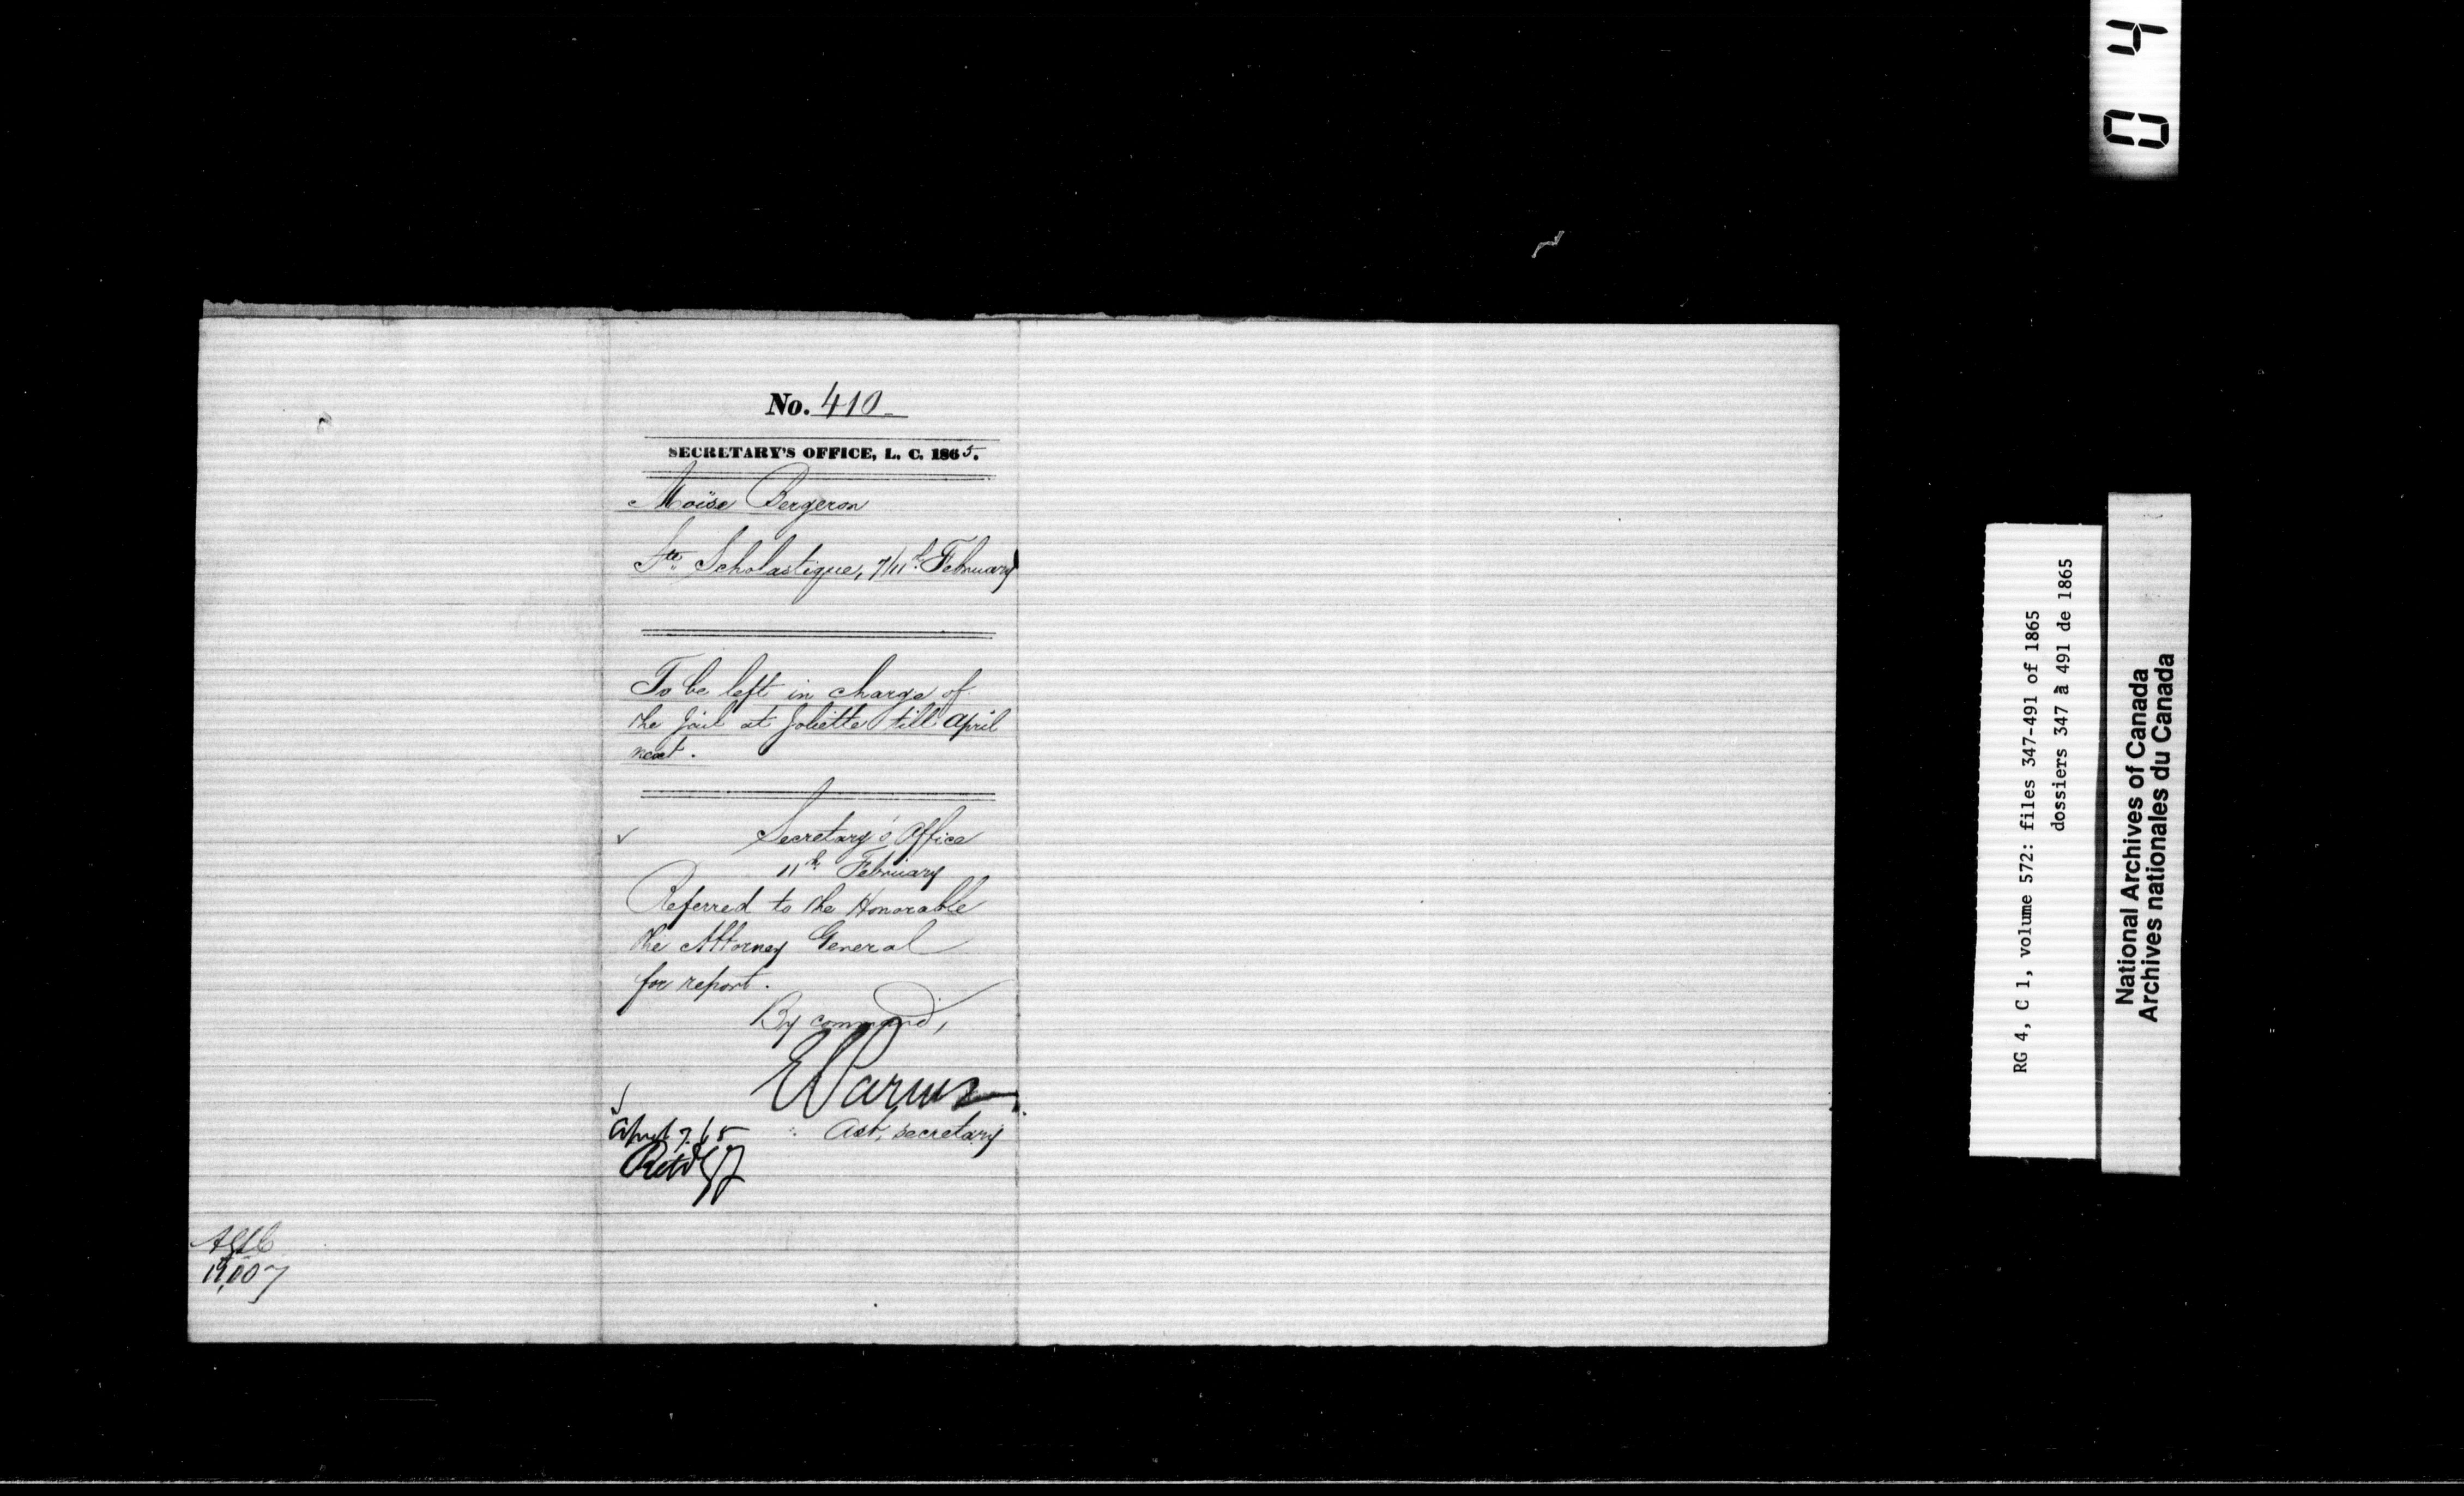 No. 410
SECRETARY'S OFFICE, L. C. 1865.
Moïse Bergeron
Ste. Scholastique, 7/11th February
To be left in charge of
the Jail at Joliette till April
next.
Secretary's Office
11th February
Referred to the Honorable
the Attorney General
for report.
By command,
Asst, secretary
April 7. 65
19,007
04
RG 4, C 1, volume 572: files 347-491 of 1865
dossiers 347 à 491 de 1865
National Archives of Canada
Archives nationales du Canada